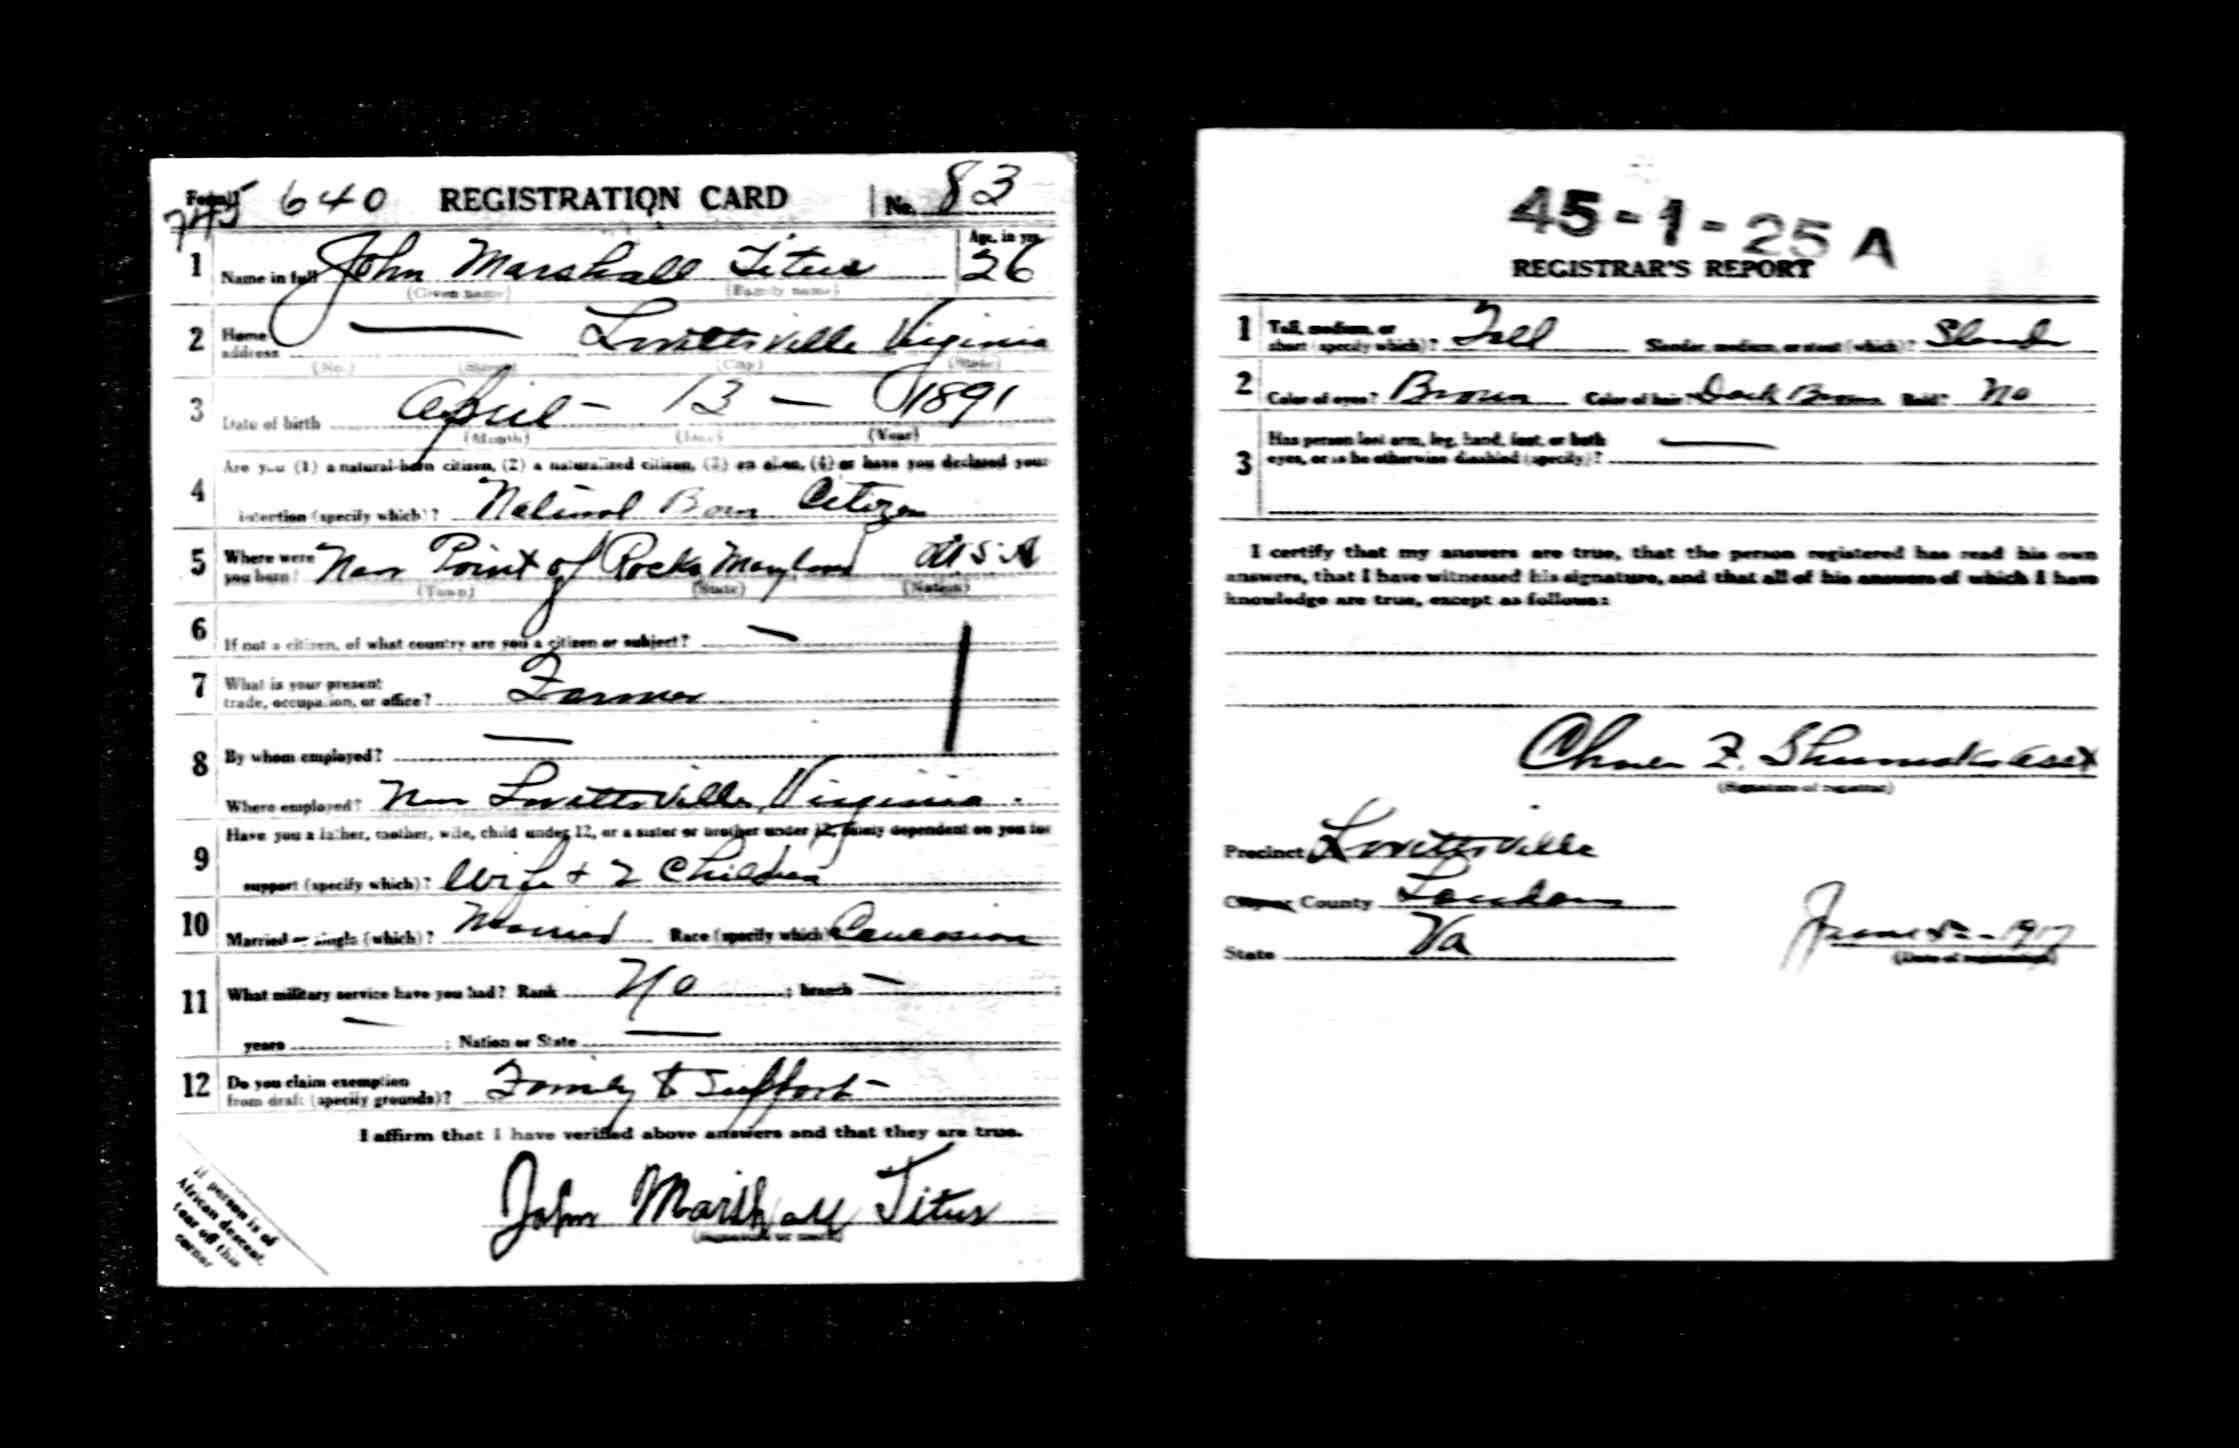 Form 1 640 REGISTRATION CARD No. 83
1 Name in full John Marshall Titus Age, in yrs. 26
(Given name) (Family name)
2 Home address — Lovettsville Virginia
(No.) (Street) (City) (State)
3 Date of birth April - 13 - 1891
(Month) (Day) (Year)
4 Are you (1) a natural-born citizen, (2) a naturalized citizen, (3) an alien, (4) or have you declared your
intention (specify which)? Natural Born Citizen
5 Where were you born? Near Point of Rocks Maryland U S A
(Town) (State) (Nation)
6 If not a citizen, of what country are you a citizen or subject? —
7 What is your present
trade, occupation, or office? Farmer
8 By whom employed? —
Where employed? Near Lovettsville, Virginia.
9 Have you a father, mother, wife, child under 12, or a sister or brother under 12, solely dependent on you for
support (specify which)? Wife + 2 Children
10 Married or single (which)? Married Race (specify which)? Caucasian
11 What military service have you had? Rank No ; branch — ;
years — ; Nation or State —
12 Do you claim exemption
from draft (specify grounds)? Family to Support -
I affirm that I have verified above answers and that they are true.
John Marshall Titus
(Signature or mark)
If person is of
African descent,
tear off this
corner
45-1-25 A
REGISTRAR'S REPORT
1 Tall, medium, or
short (specify which)? Tall Slender, medium, or stout (which)? Slender
2 Color of eyes? Brown Color of hair? Dark Brown Bald? No
3 Has person lost arm, leg, hand, foot, or both
eyes, or is he otherwise disabled (specify)? —
I certify that my answers are true, that the person registered has read his own
answers, that I have witnessed his signature, and that all of his answers of which I have
knowledge are true, except as follows:
(Signature of registrar)
Precinct Lovettsville
County Loudoun
State Va
June 5 - 1917
(Date of registration)